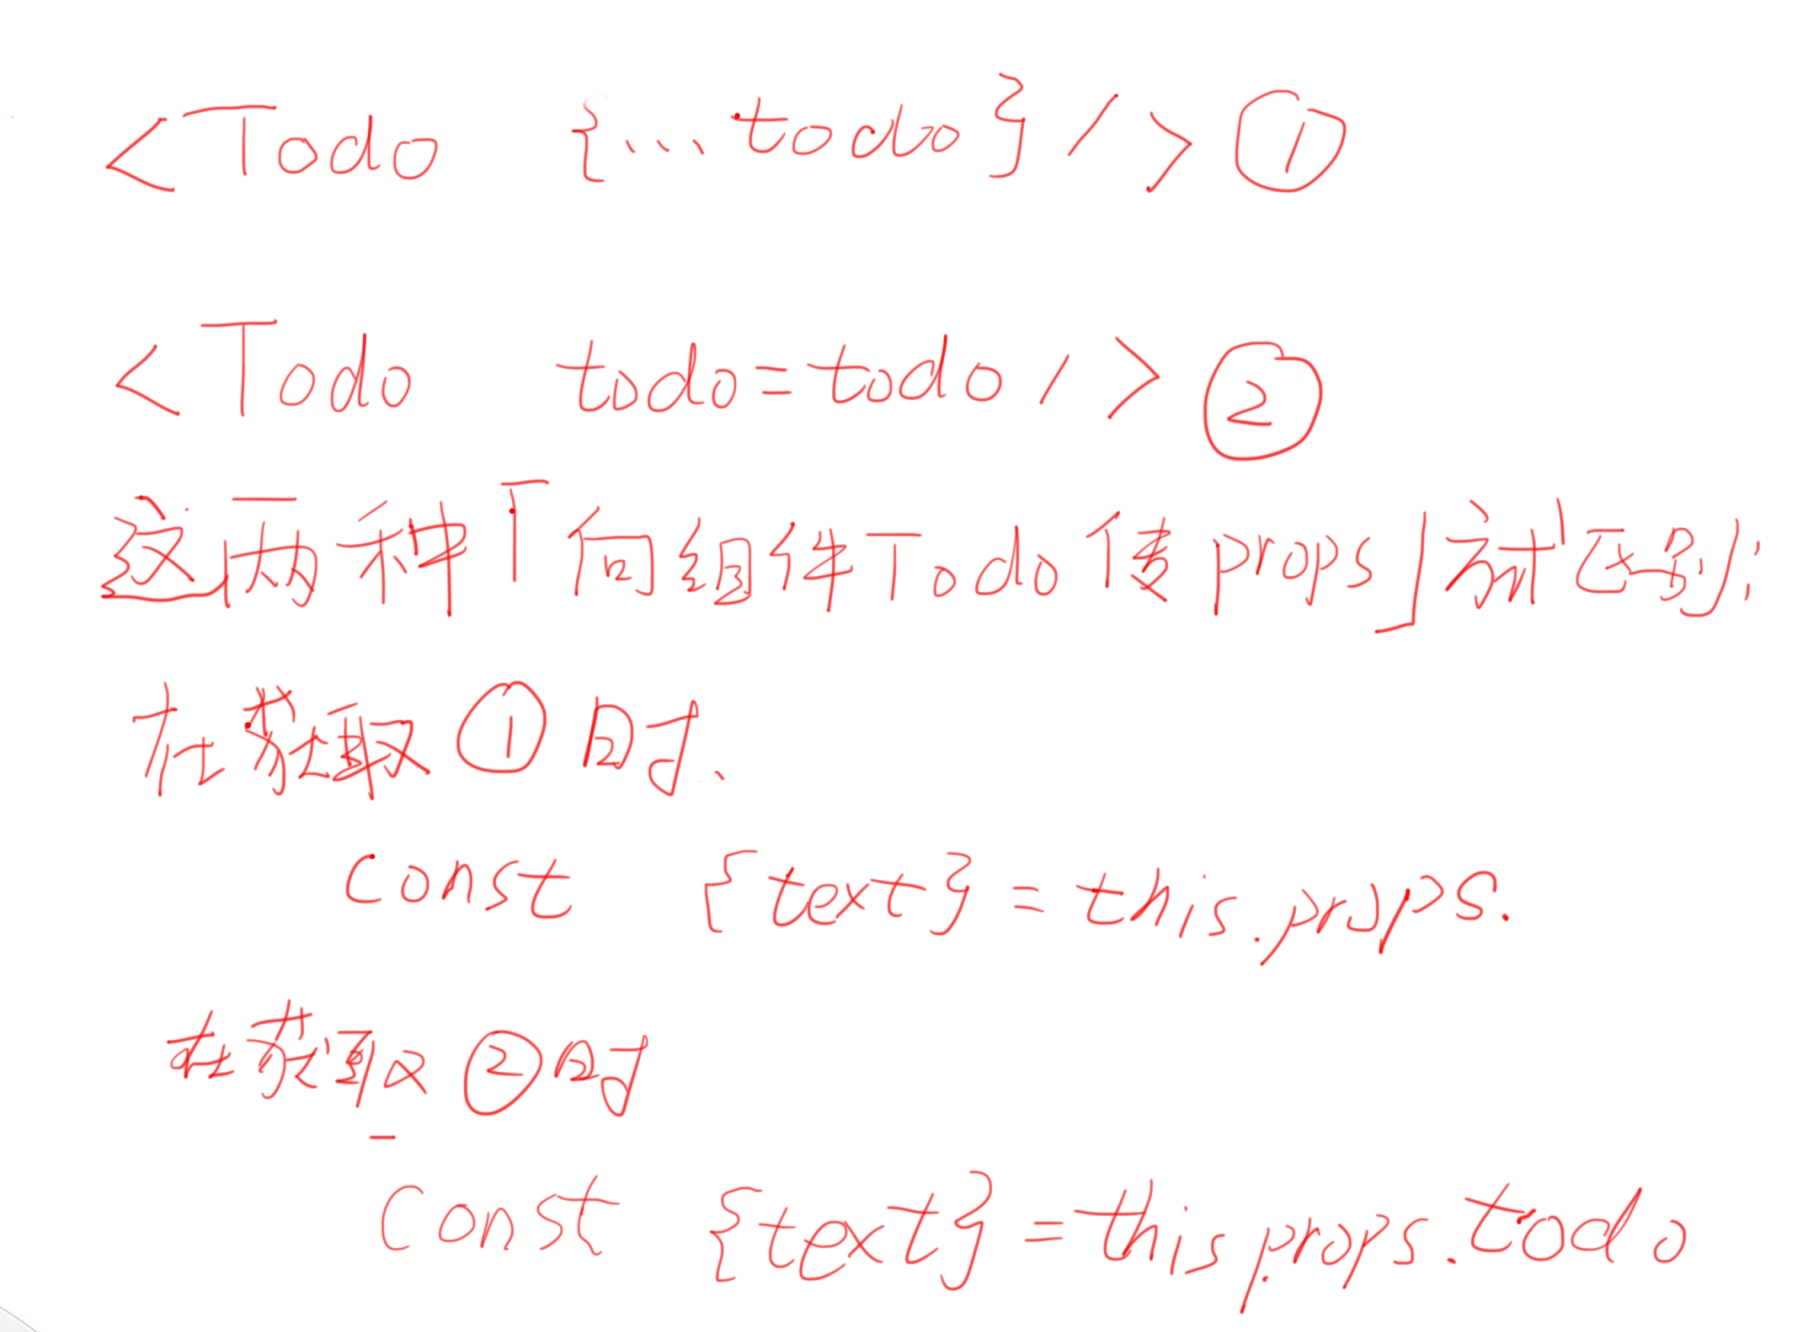 <Todo {...todo} /> ①
<Todo todo=todo /> ②
这两种「向组件Todo传props」方式区别:
在获取①时、
const {text} = this.props.
在获取②时
const {text} = this.props.todo